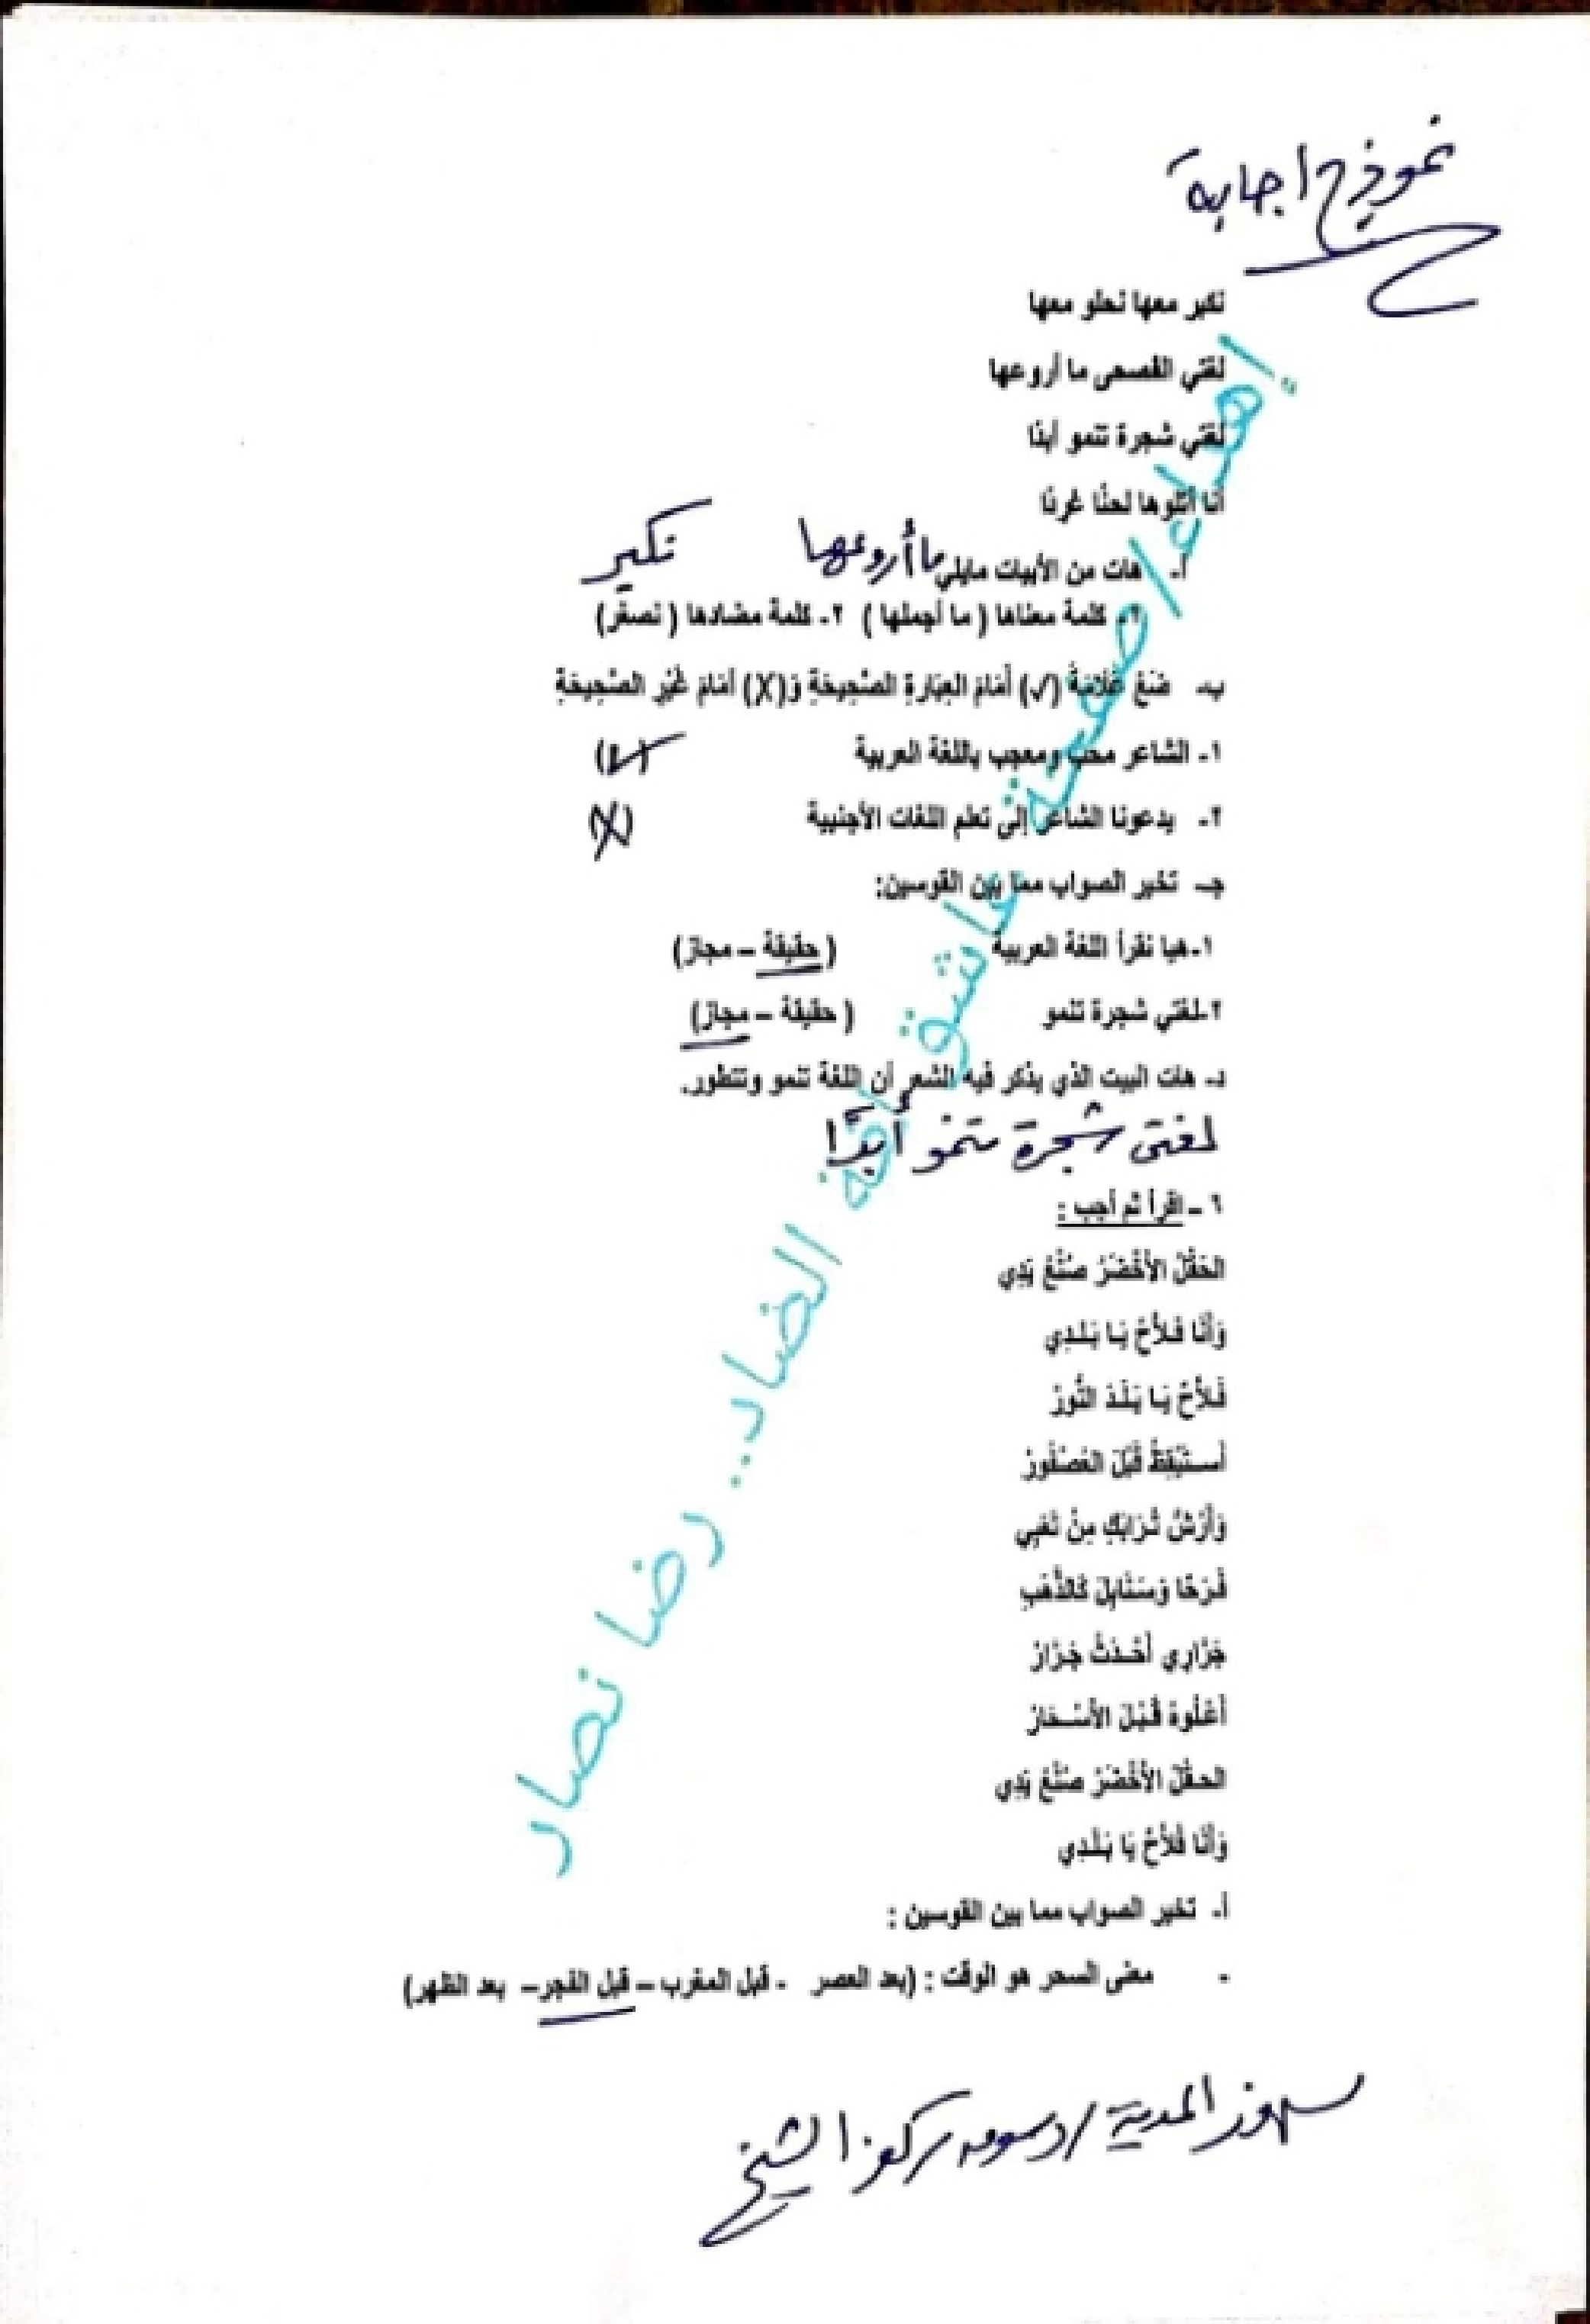 نموذج اجابة
تكبر معها تحلو معها
لغتي الفصحى ما أروعها
لغتي شجرة تنمو أبدًا
أنا أتلوها لحنًا غردًا
أ- هات من الأبيات مايلي ما أروعها تكبر
١- كلمة معناها ( ما أجملها ) ٢- كلمة مضادها ( تصغر)
ب- ضَعْ عَلَامَةَ (√) أَمَامَ العِبَارَةِ الصَّحِيحَةِ وَ(X) أَمَامَ غَيْرِ الصَّحِيحَةِ
١- الشاعر محب ومعجب باللغة العربية (√)
٢- يدعونا الشاعر إلى تعلم اللغات الأجنبية (X)
جـ- تخير الصواب مما بين القوسين:
١-هيا نقرأ اللغة العربية ( حقيقة – مجاز)
٢-لغتي شجرة تنمو ( حقيقة – مجاز)
د- هات البيت الذي يذكر فيه الشعر أن اللغة تنمو وتتطور.
لغتى شجرة تنمو أبدًا
٦ – اقرأ ثم أجب :
الحَقْلُ الأَخْضَرُ صُنْعُ يَدِي
وَأَنَا فَلاَّحٌ يَا بَلَدِي
فَلاَّحٌ يَا بَلَدَ النُّورْ
أَسْتَيْقِظُ قَبْلَ العُصْفُورْ
وَأَرُشُّ تُرَابَكِ مِنْ تَعَبِي
فَرَحًا وَسَنَابِلَ كَالذَّهَبِ
جَرَّارِي أَحْدَثُ جَرَّارْ
أَعْلُوهُ قَبْلَ الأَسْحَارْ
الحَقْلُ الأَخْضَرُ صُنْعُ يَدِي
وَأَنَا فَلاَّحٌ يَا بَلَدِي
أ- تخير الصواب مما بين القوسين :
- معنى السحر هو الوقت : (بعد العصر - قبل المغرب – قبل الفجر– بعد الظهر)
إهداء / صفحة عاشق لغة الضاد.. رضا نصار
المدينة / دسوق كفر الشيخ